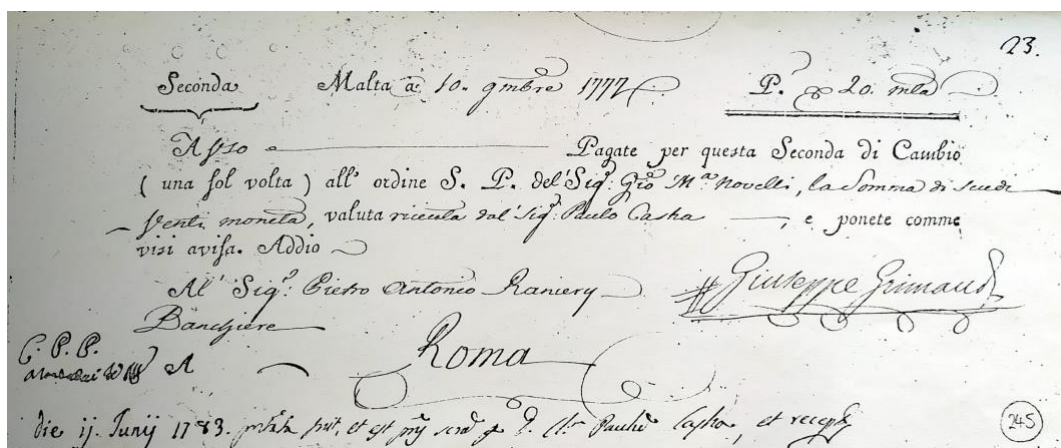 23.
Seconda Malta à 10. 9mbre 1777 P.º 20. mta
A uso Pagate per questa Seconda di Cambio
( una sol volta ) all' ordine S. P. del Sigʳ Gio Mª Novelli, la Somma di scudi
Venti moneta, valuta riceuta dal Sigʳ Paulo Casha , e ponete comme
visi avisa. Addio
Al' Sigʳ Pietro Antonio Raniery Giuseppe Grimaud
Banchiere
C. P. P. A Roma
die ij. Junij 1783. et est Casha, et 245